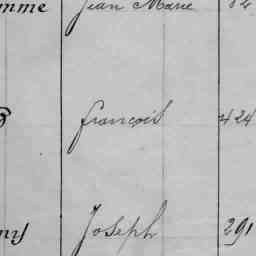 mme Jean Marie 82
françois 424
ny Joseph 291